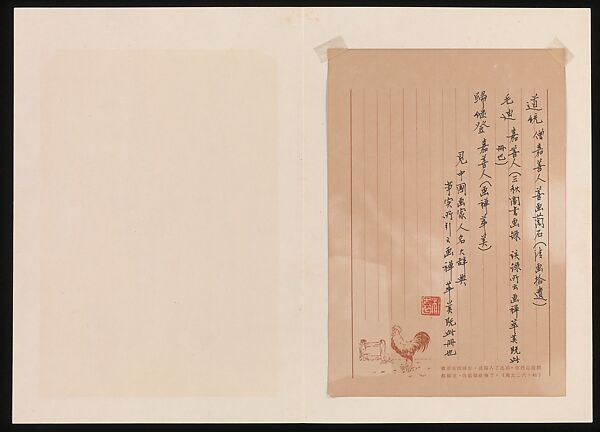 道統 僧 嘉善人 善畫蘭石(清畫拾遺)
毛迪 嘉善人(三秋閣書畫錄 該錄所云畫禪萃美既此
冊也)
歸懋登 嘉善人(畫禪萃美)
見中國畫家人名大辭典
事实所引之畫禪萃美既此冊也